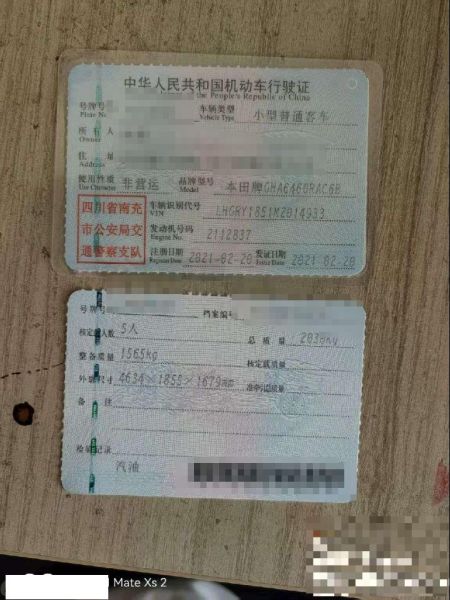 中华人民共和国机动车行驶证
the People's Republic of China
号牌号
Plate No
车辆类型
Vehicle Type
小型普通客车
所有人
Owner
住 址
Address
使用性质
Use Character
非营运
品牌型号
Model
本田牌GHA6460RAC6B
四川省南充
市公安局交
通警察支队
车辆识别代号
VIN
发动机号码
Engine No.
2112837
注册日期
Register Date
2021-02-20
发证日期
Issue Date
2021-02-20
号牌号
档案编
核定载人数
5人
总质量
2030kg
整备质量
1565kg
核定载质量
外廓尺寸
4634×1855×1679mm
准牵引总质量
备 注
检验记录
汽油
Mate Xs 2